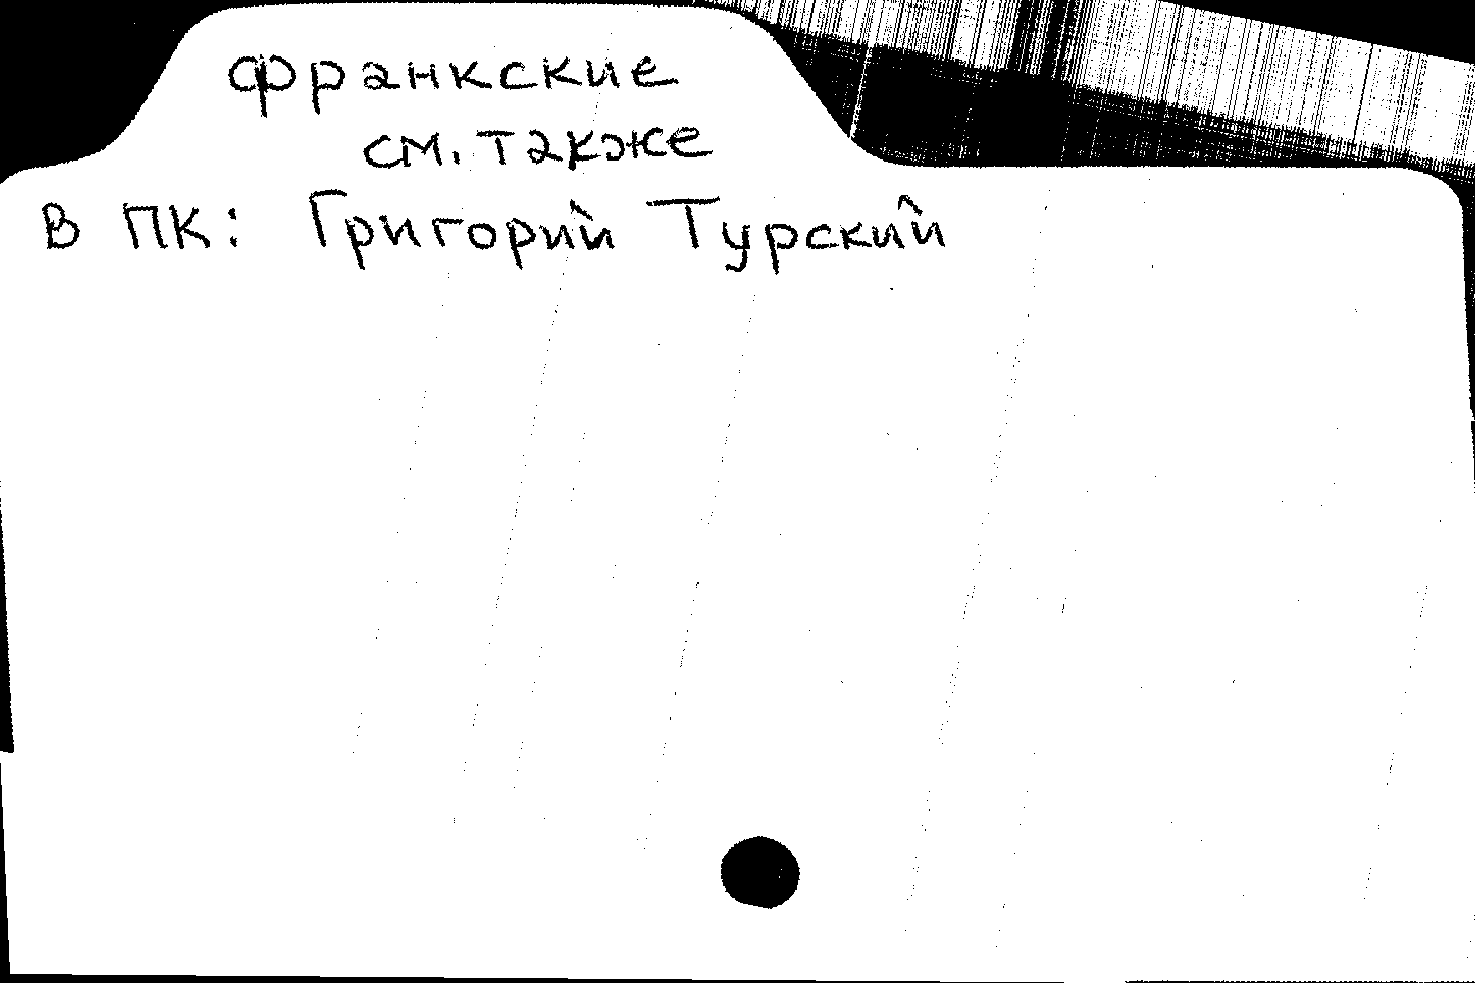 франкские
см. также
в ПК: Григорий Турский